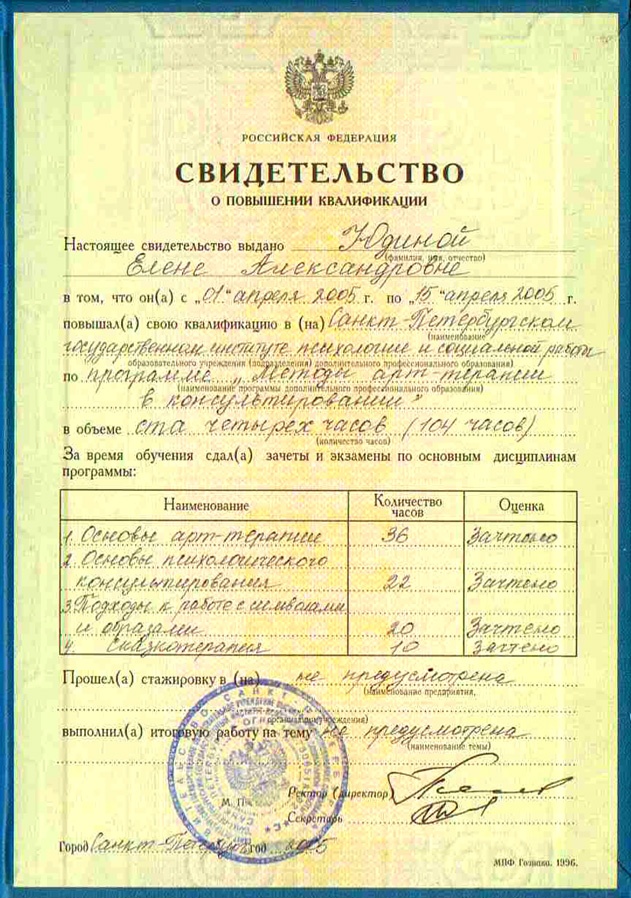 РОССИЙСКАЯ ФЕДЕРАЦИЯ
СВИДЕТЕЛЬСТВО
О ПОВЫШЕНИИ КВАЛИФИКАЦИИ
Настоящее свидетельство выдано Юдиной
(фамилия, имя, отчество)
Елене Александровне
в том, что он(а) с „01" апреля 2005 г. по „15" апреля 2005 г.
повышал(а) свою квалификацию в (на) Санкт-Петербургском
(наименование
государственном институте психологии и социальной работы
образовательного учреждения (подразделения) дополнительного профессионального образования)
по программе „Методы арт-терапии
(наименование программы дополнительного профессионального образования)
в консультировании"
в объеме ста четырех часов (104 часов)
(количество часов)
За время обучения сдал(а) зачеты и экзамены по основным дисциплинам
программы:
Наименование Количество часов Оценка
1. Основы арт-терапии 36 Зачтено
2. Основы психологического
консультирования 22 Зачтено
3. Подходы к работе с символами
и образами 20 Зачтено
4. Сказкотерапия 10 Зачтено
Прошел(а) стажировку в (на) не предусмотрена
(наименование предприятия,
организации, учреждения)
выполнил(а) итоговую работу на тему не предусмотрена
(наименование темы)
Ректор (директор)
М. П.
Секретарь
Город Санкт-Петербург год 2005
МПФ Гознака. 1996.